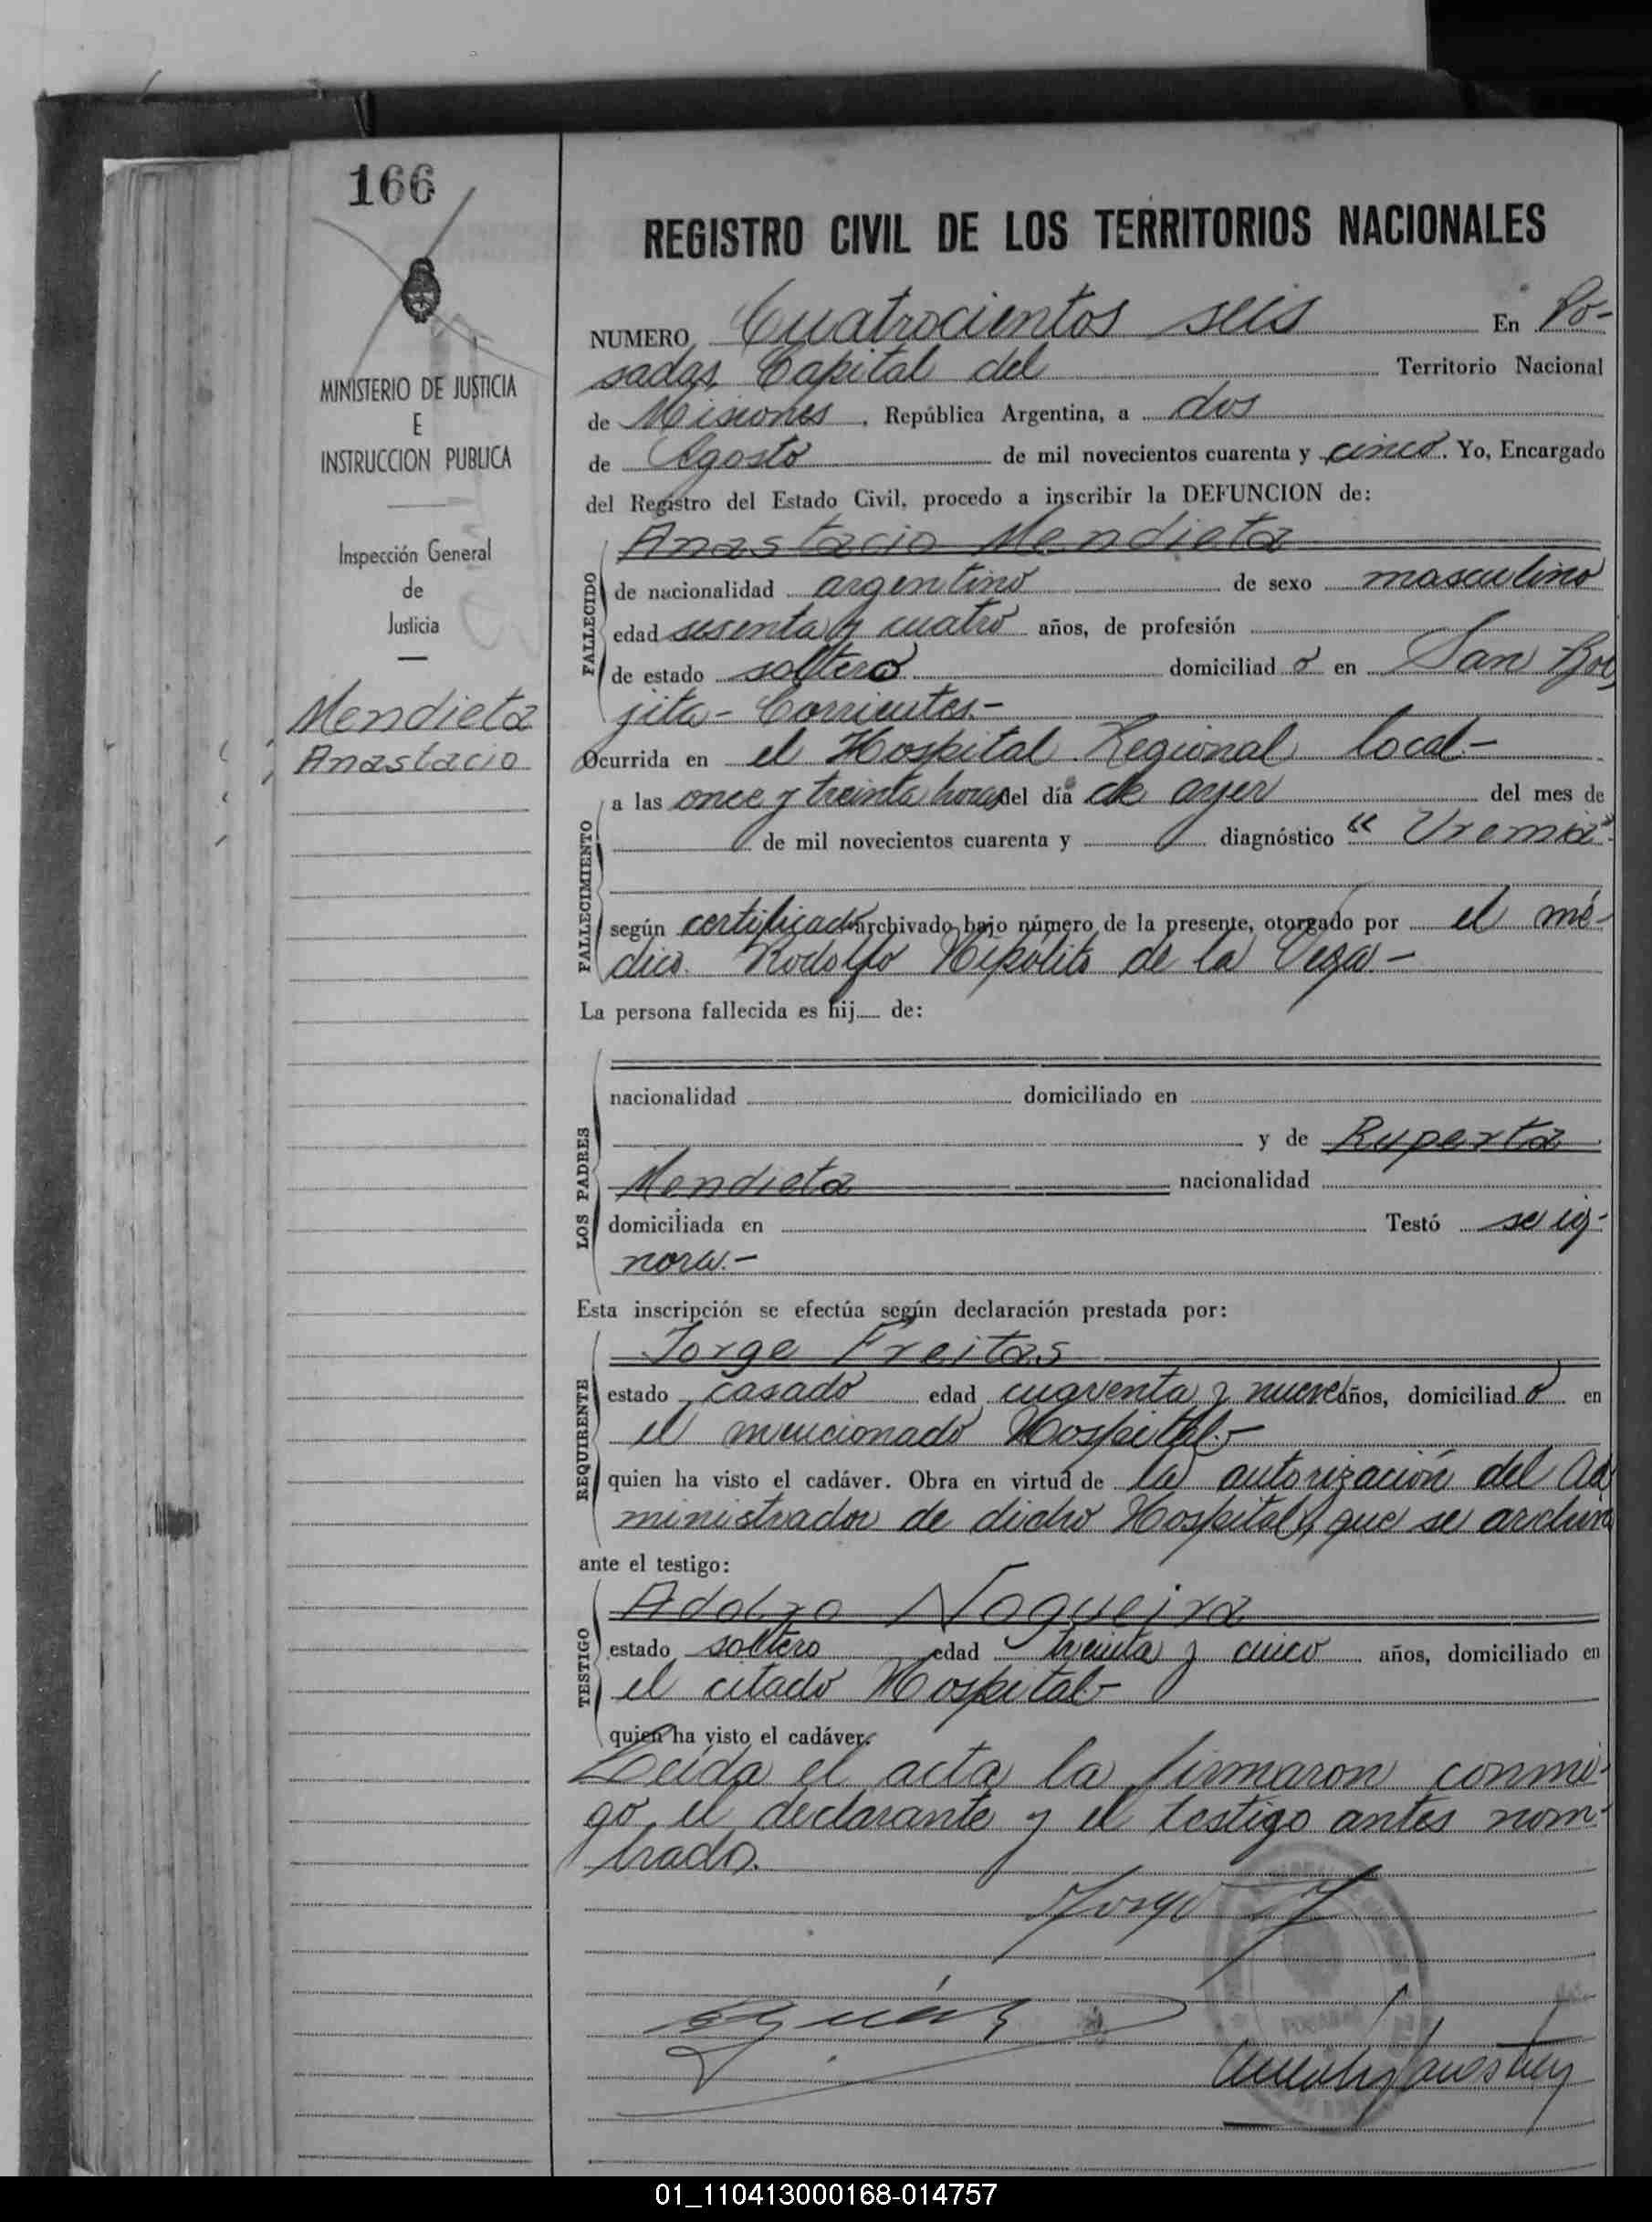 166
MINISTERIO DE JUSTICIA
E
INSTRUCCION PUBLICA
Inspección General
de
Justicia
Mendieta
Anastacio
REGISTRO CIVIL DE LOS TERRITORIOS NACIONALES
NUMERO Cuatrocientos seis En Po-
sadas Capital del Territorio Nacional
de Misiones, República Argentina, a dos
de Agosto de mil novecientos cuarenta y cinco. Yo, Encargado
del Registro del Estado Civil, procedo a inscribir la DEFUNCION de:
FALLECIDO
Anastacio Mendieta
de nacionalidad argentino de sexo masculino
edad sesenta y cuatro años, de profesión
de estado soltero domiciliado en San Bor
jita - Corrientes.-
Ocurrida en el Hospital Regional local.-
FALLECIMIENTO
a las once y treinta horas del día de ayer del mes de
de mil novecientos cuarenta y diagnóstico "Uremia".
según certificado archivado bajo número de la presente, otorgado por el mé-
dico Rodolfo Hipólito de la Vega.-
La persona fallecida es hij de:
LOS PADRES
nacionalidad domiciliado en
y de Ruperta
Mendieta nacionalidad
domiciliada en Testó se ig-
nora.-
Esta inscripción se efectúa según declaración prestada por:
REQUIRENTE
Jorge Freitas
estado casado edad cuarenta y nueve años, domiciliado en
el mencionado Hospital.-
quien ha visto el cadáver. Obra en virtud de la autorización del Ad
ministrador de dicho Hospital, que se archiva
ante el testigo:
TESTIGO
Adolfo Nogueira
estado soltero edad treinta y cinco años, domiciliado en
el citado Hospital-
quien ha visto el cadáver.
Leída el acta la firmaron conmi-
go el declarante y el testigo antes nom-
brado.
Jorge
POSADAS
01_110413000168-014757